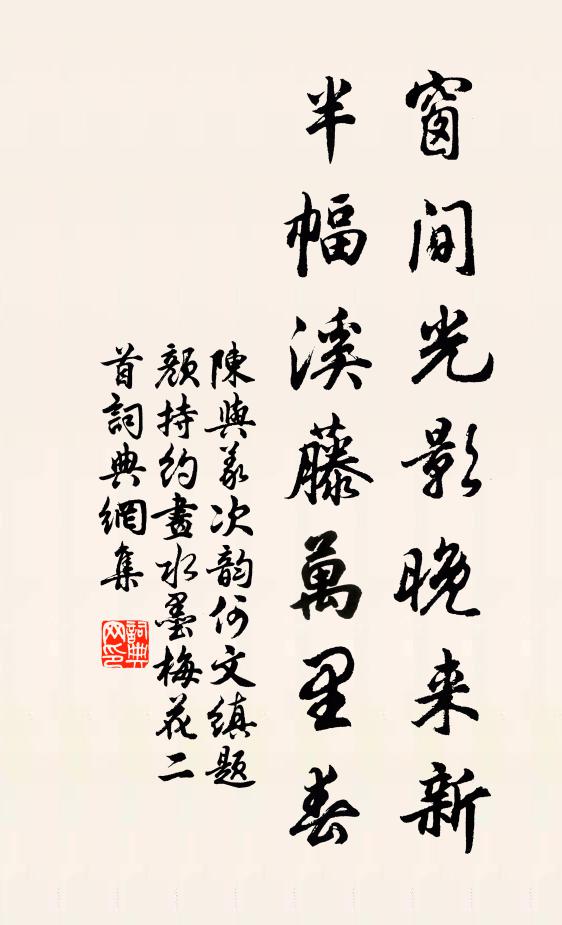 窗间光影晚来新
半幅溪藤萬里春
陳與義次韵何文縝题
顏持约畫水墨梅花二
首詞典網集
詞典网印